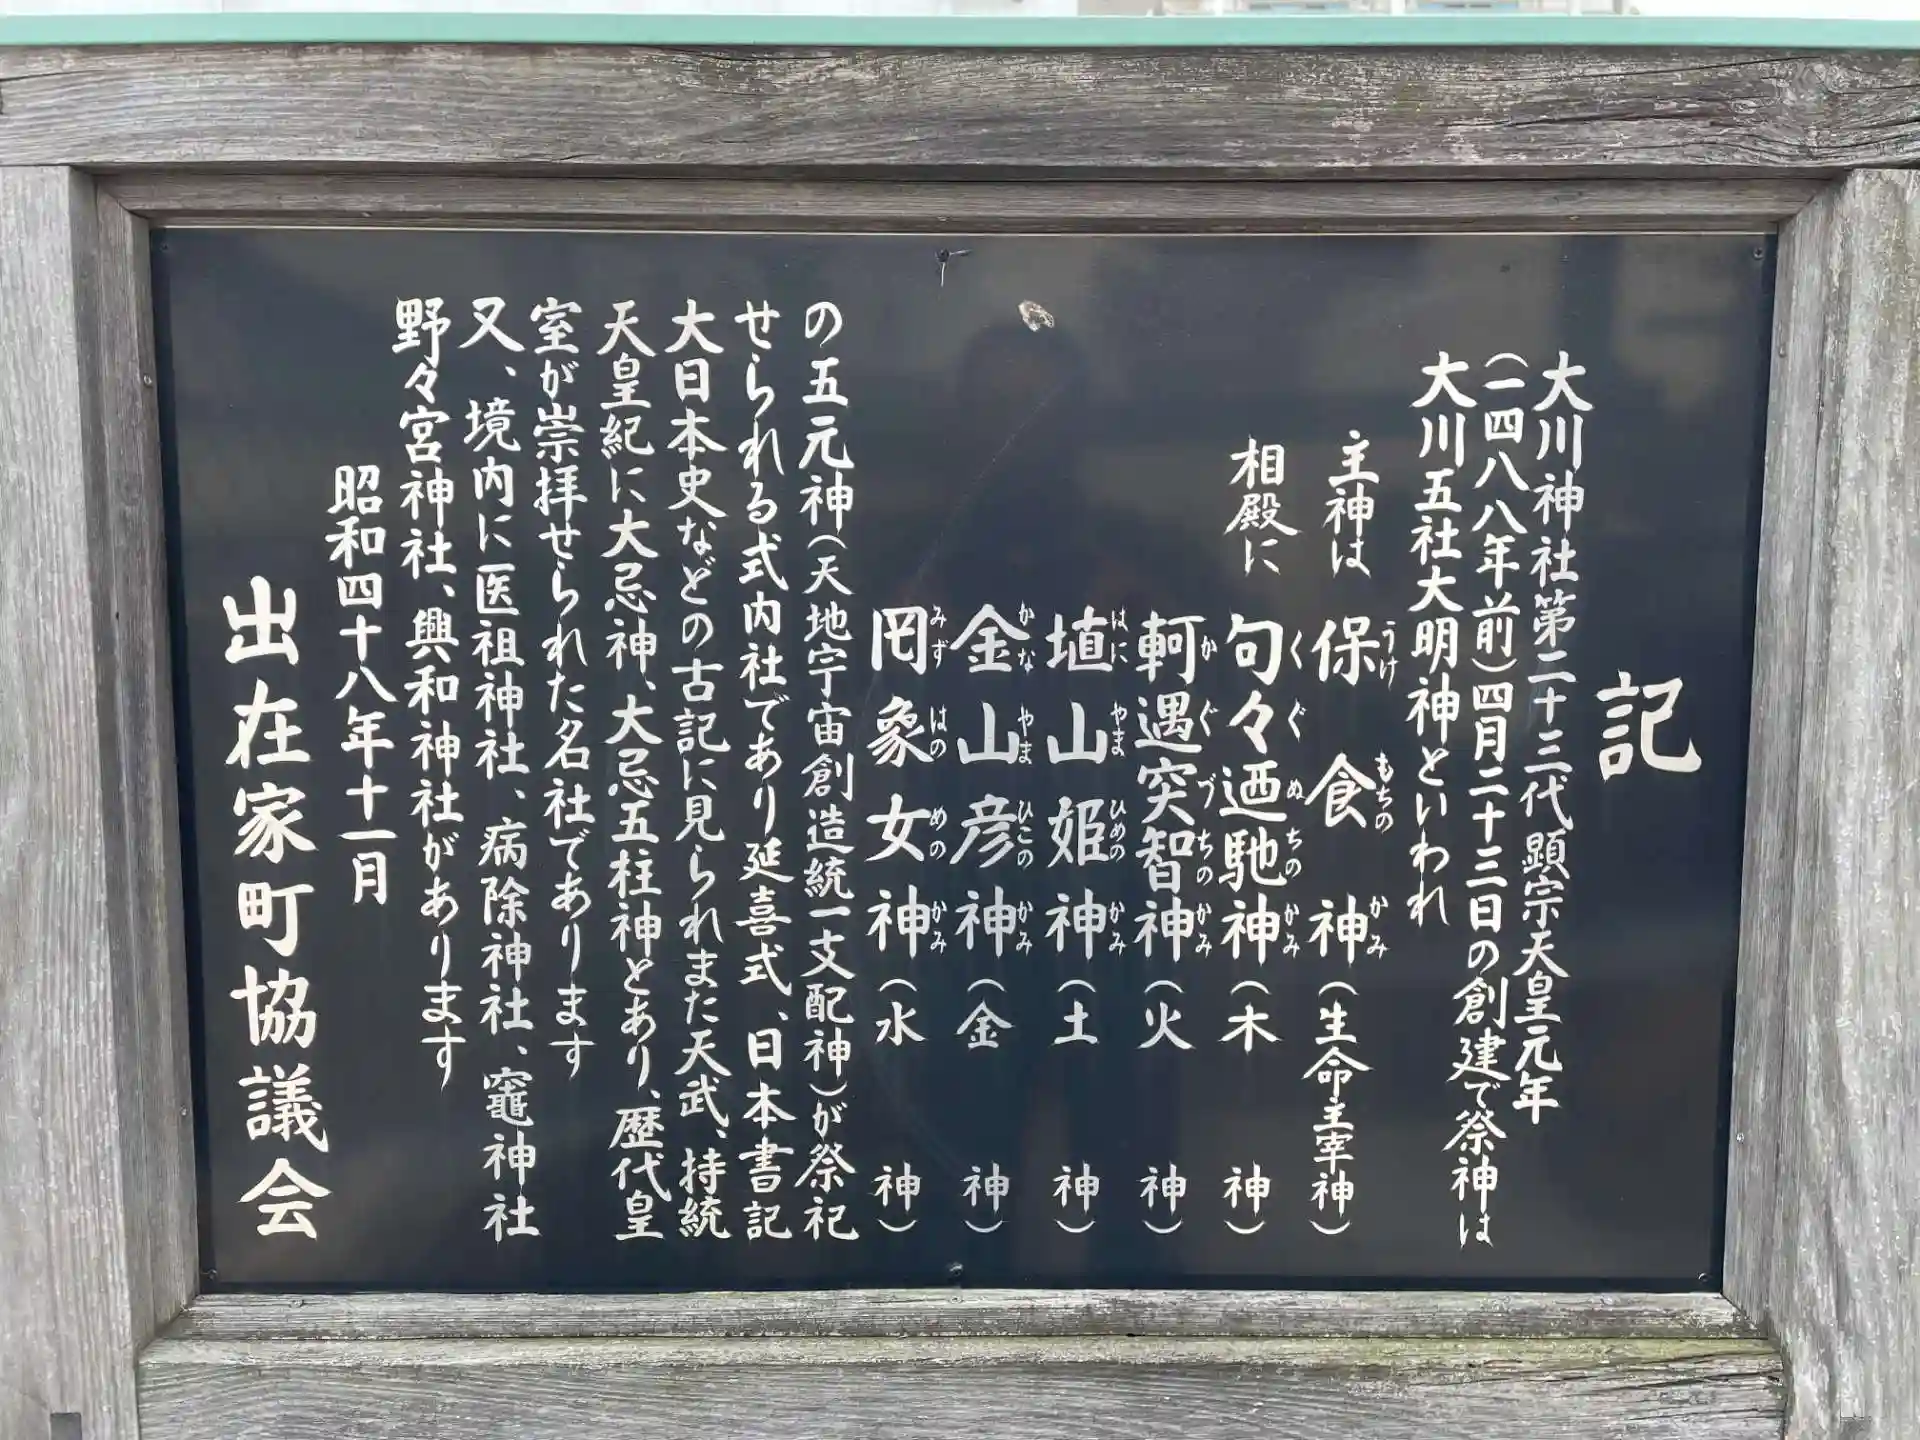 記
大川神社第二十三代顕宗天皇元年
(一四八八年前)四月二十三日の創建で祭神は
大川五社大明神といわれ
主神は 保食神(生命主宰神)
うけもちのかみ
相殿に 句々廼馳神(木神)
くぐぬちのかみ
軻遇突智神(火神)
かぐづちのかみ
埴山姫神(土神)
はにやまひめのかみ
金山彦神(金神)
かなやまひこのかみ
罔象女神(水神)
みずはのめのかみ
の五元神(天地宇宙創造統一支配神)が祭祀
せられる式内社であり延喜式、日本書記
大日本史などの古記に見られまた天武、持統
天皇紀に大忌神、大忌五柱神とあり、歴代皇
室が崇拝せられた名社であります
又、境内に医祖神社、病除神社、竈神社
野々宮神社、興和神社があります
昭和四十八年十一月
出在家町協議会